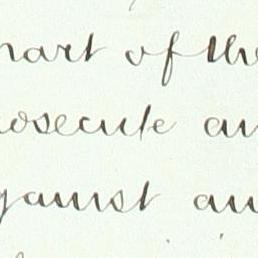 part of the
rosecute an
gainst an